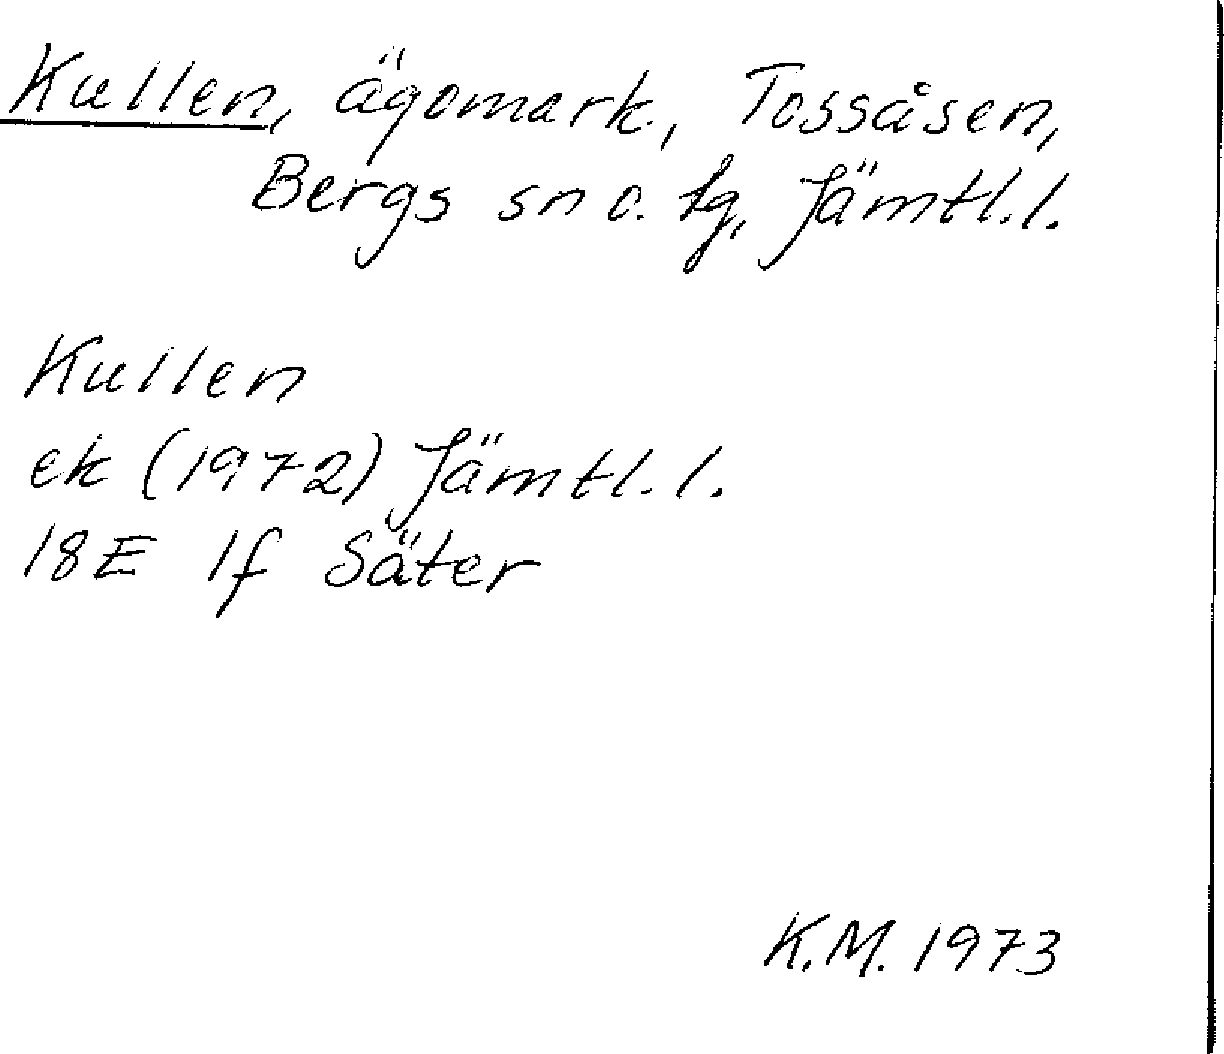 Kullen, ägomark, Tossåsen,
Bergs sn o. tg, Jämtl. l.
Kullen
ek (1972) Jämtl. l.
18E 1f Säter
K.M. 1973